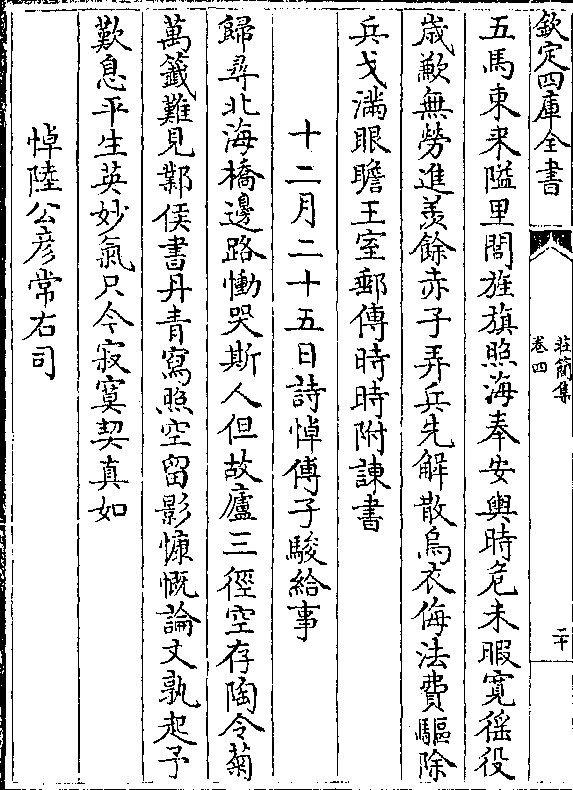 欽定四庫全書
莊簡集
卷四
二十
五馬東来隘里閭旌旗照海奉安輿時危未暇寛徭役
歲歉無勞進羡餘赤子弄兵先解散烏衣侮法費驅除
兵戈滿眼瞻王室郵傳時時附諫書
十二月二十五日詩悼傅子駿給事
歸尋北海橋邊路慟哭斯人但故廬三徑空存陶令菊
萬籤難見鄴侯書丹青寫照空留影慷慨論文孰起予
歎息平生英妙氣只今寂寞契真如
悼陸公彥常右司